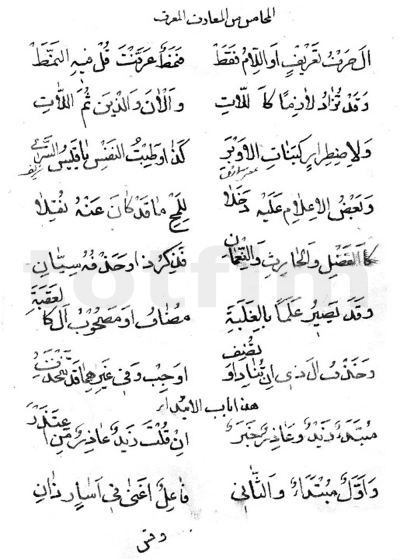 الخامس من المعارف المعرف
ال حرف تعريف او اللام فقط فنمط عرفت قل فيه النمط
وقد تزاد لازما كاللات والآن والذين ثم اللات
ولاضطرار كبنات الاوبر كذا وطبت النفس يا قيس السري
وبعض الاعلام عليه دخلا للمح ما قد كان عنه نقلا
كالفضل والحارث والنعمان فذكر ذا وحذفه سيان
وقد يصير علما بالغلبة مضاف او مصحوب ال كالعقبة
وحذف ال ذي ان تناد او تضف اوجب وفي غيرهما قد تنحذف
هذا باب الابتداء
مبتدء زيد وعاذر خبر ان قلت زيد عاذر من اعتذر
واول مبتداء والثاني فاعل اغنى في اسار ذان
وقس